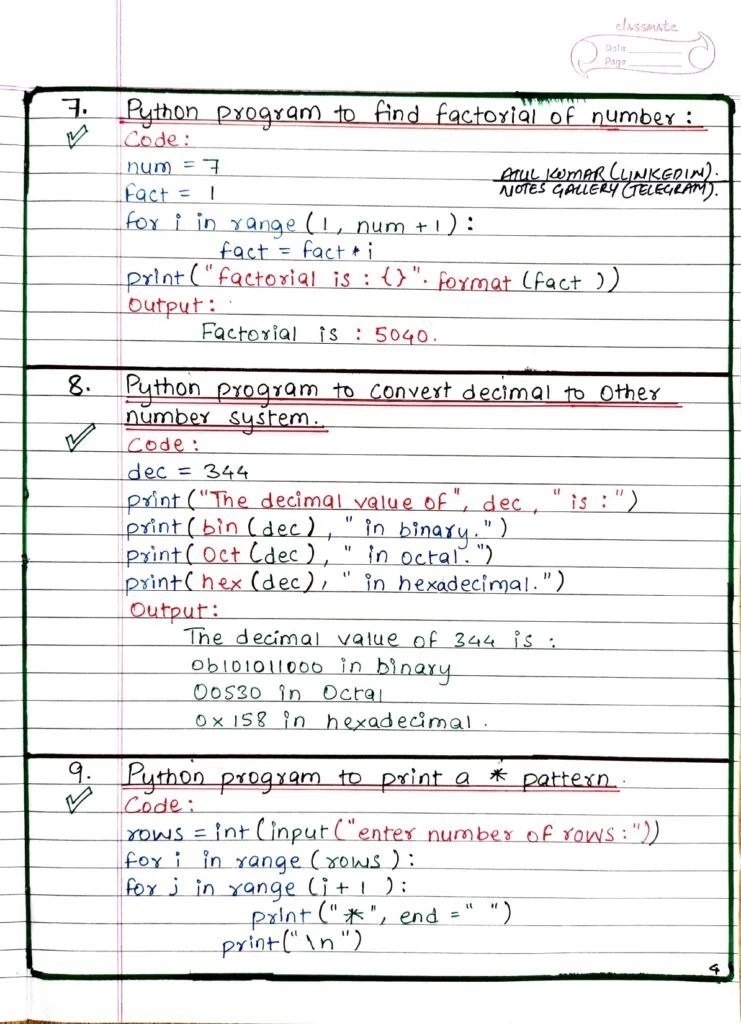 classmate
Date
Page
7. Python program to find factorial of number :
Code :
num = 7
ATUL KUMAR (LINKEDIN).
NOTES GALLERY (TELEGRAM).
fact = 1
for i in range (1, num +1) :
fact = fact * i
print ("factorial is : {}". format (fact ))
Output :
Factorial is : 5040.
8. Python program to convert decimal to Other
number system.
Code :
dec = 344
print ("The decimal value of", dec, "is :")
print ( bin (dec), " in binary.")
print ( Oct (dec), " in octal.")
print ( hex (dec), " in hexadecimal.")
Output :
The decimal value of 344 is :
0b101011000 in binary
00530 in Octal
0x158 in hexadecimal.
9. Python program to print a * pattern.
Code :
rows = int (input ("enter number of rows :"))
for i in range (rows ) :
for j in range (i + 1 ) :
print ("*", end = " ")
print ("\n")
4